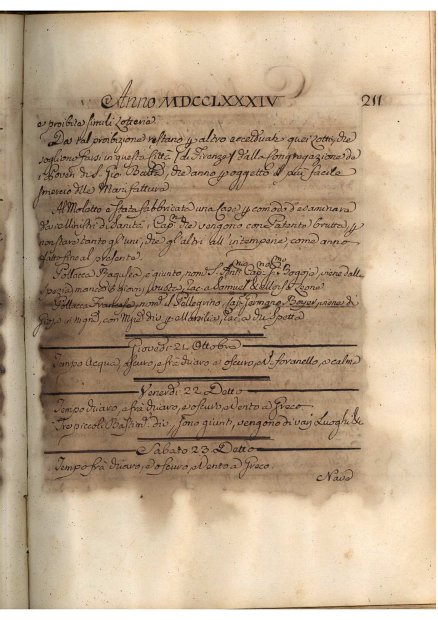 Anno MDCCLXXXIV 211
e proibite simili Lotterie.
Da tal proibizione restano però altro eccettuate quei Lotti, che
soglionsi farsi in questa Città di Firenze dalla Congregazione de
i Poveri di S. Gio. Batta, che anno per oggetto il più facile
smercio delle Manifatture.
Al Moletto è stata fabbricata una Casa per comodo d'esaminare
dai Ministri di Sanità, i Capni che vengono con Patente brutta, per
non stare tanto gl'uni, che gl'altri all'intemperie, come anno
fatto fino al presente.
Pollacca Ragusea è giunto, nom. S. Ant. Cap. Bogoje, viene dalla
Spezia, manca giorni, racc. a Samuel e Moisè Leone
Pollacca Franzese, nom. il Pellegrino, Cap. Germano Boyer, viene di
in gni, con Merci div. per Marsilia, racc. a chi spetta
Giovedì 21 Ottobre
Tempo Acqua, oscuro, e frà chiaro, e oscuro, e V. foranello, e calma
Venerdì 22 Detto
Tempo chiaro, e frà chiaro, e oscuro, e Vento a Greco.
Tre piccoli Bastim. div. sono giunti, vengono di varj Luoghi &c.
Sabato 23 Detto
Tempo frà chiaro, e oscuro, e Vento a Greco.
Nave